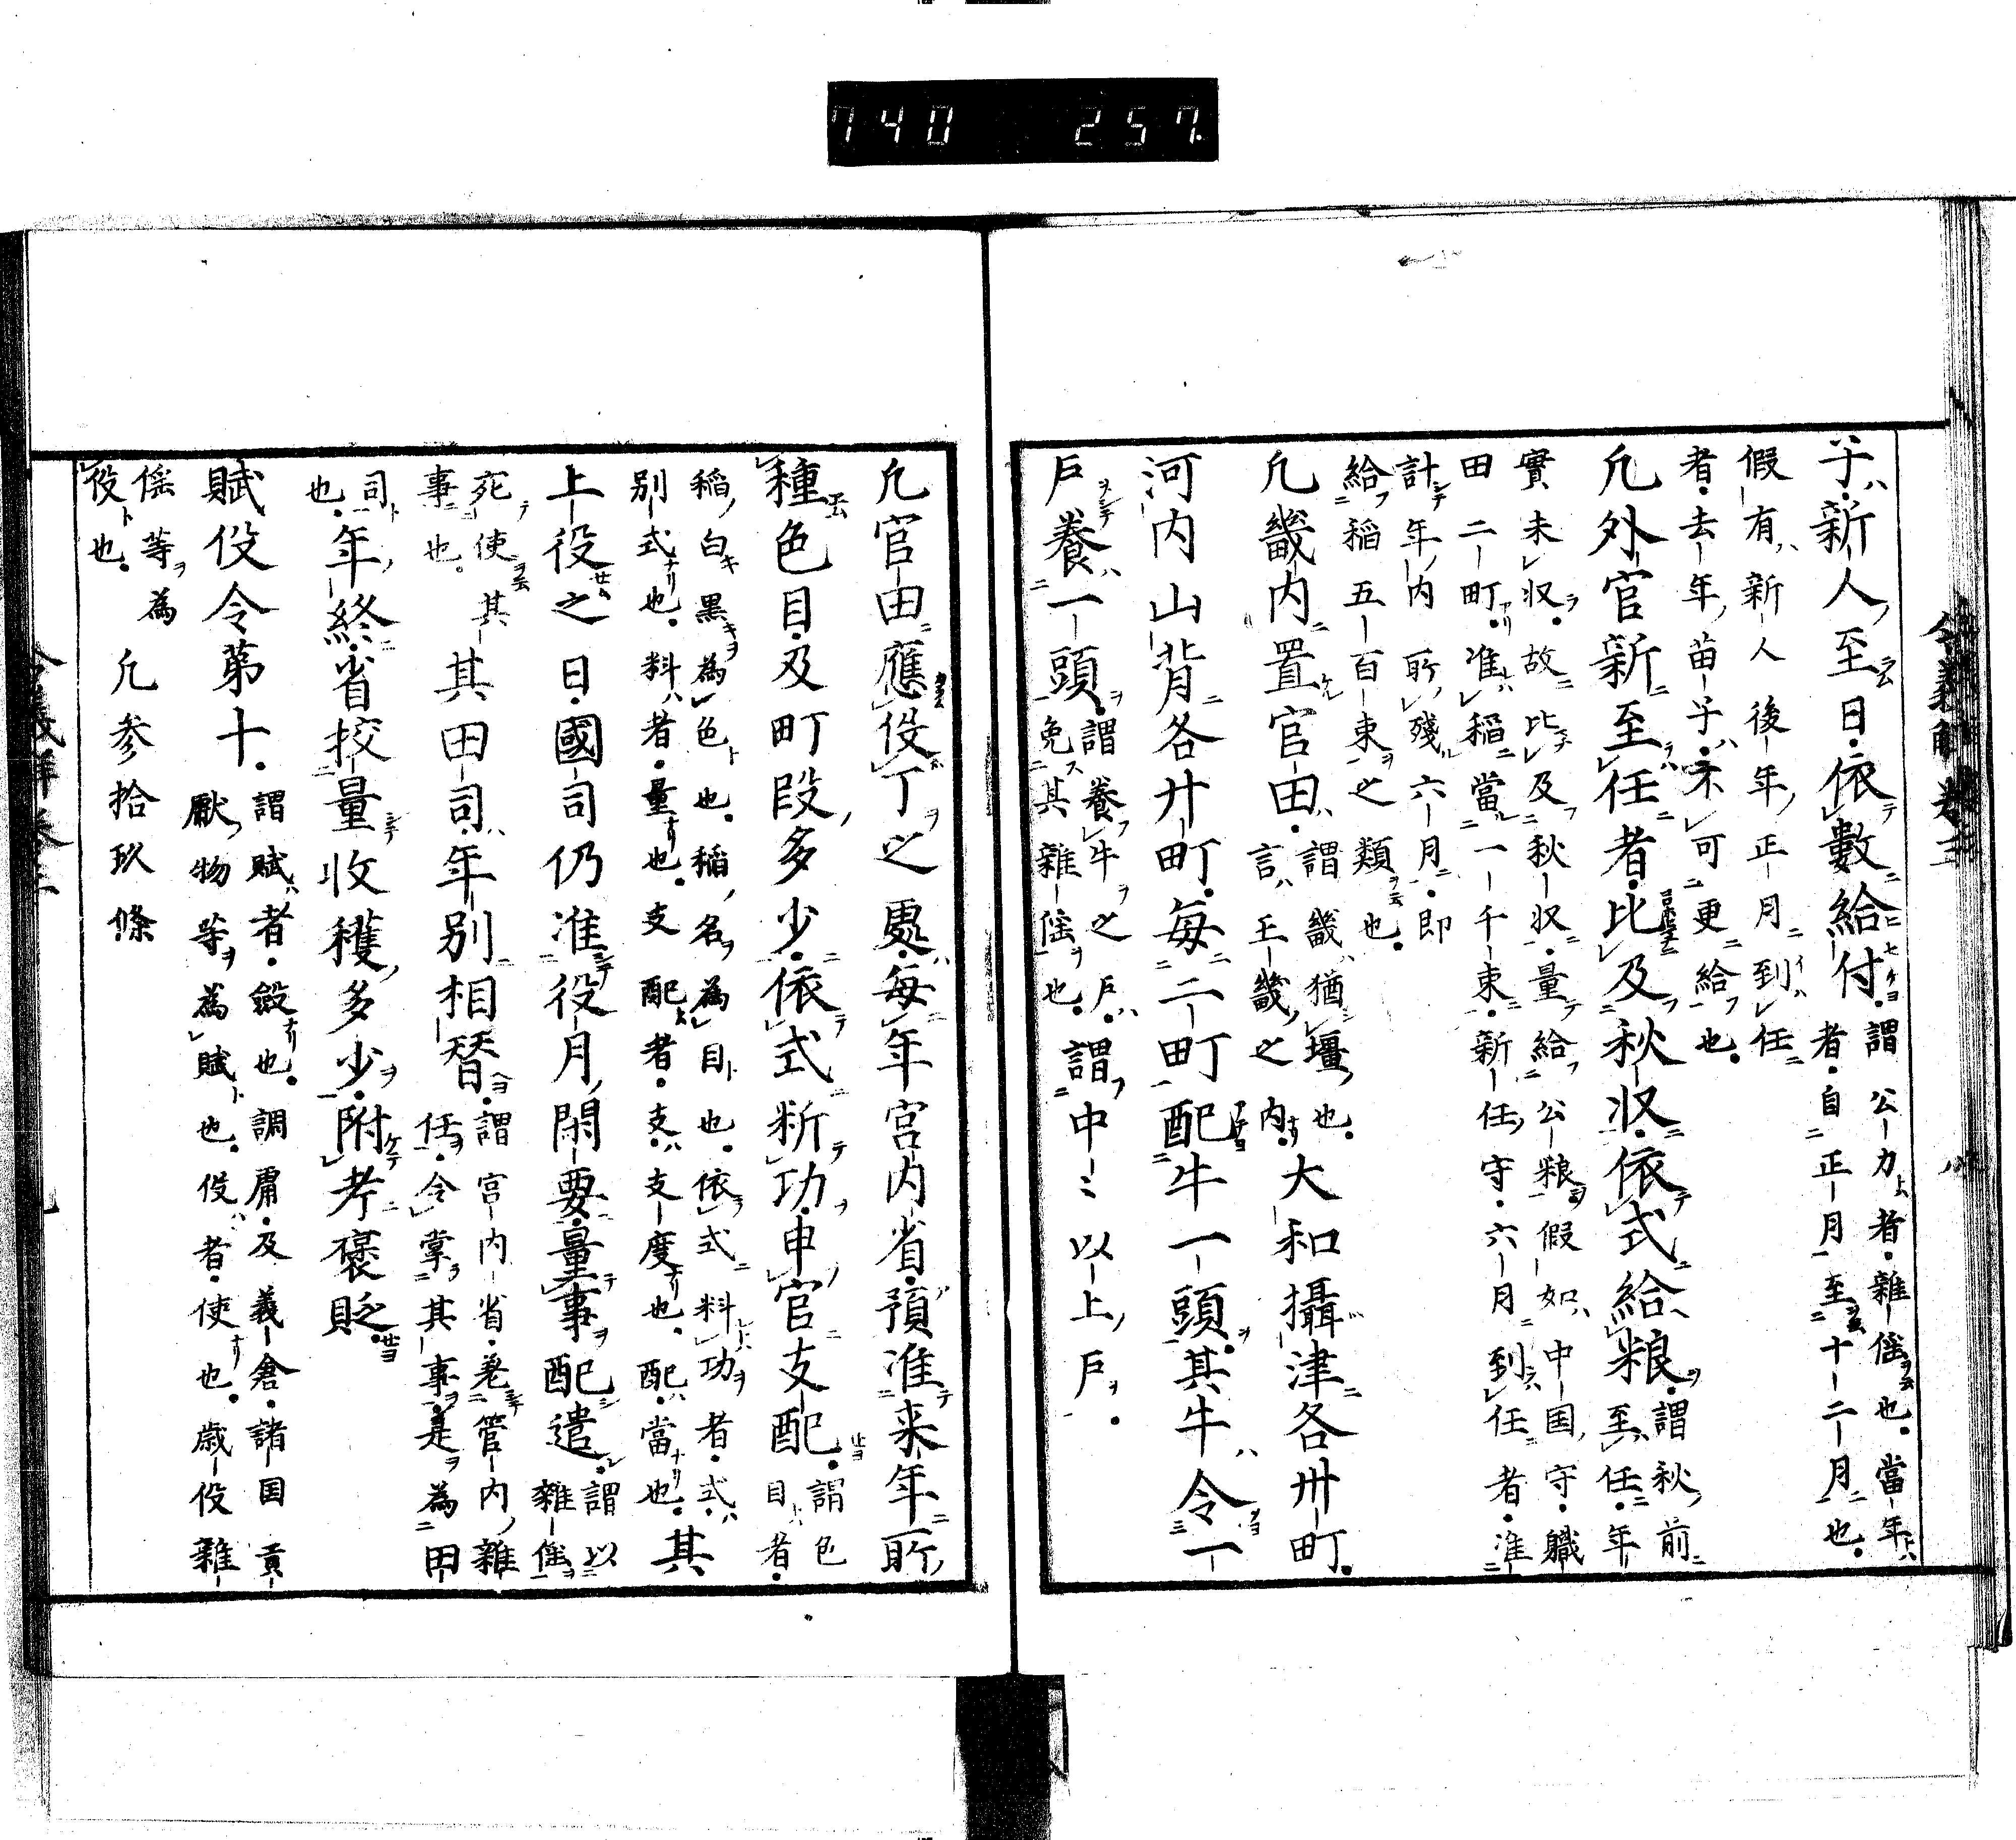 740 257
子新人至日依數給付謂公力者雜徭也當年
者自正月至十二月也
假有新人後年正月到任
者去年苗子不可更給也
凢外官新至任者比及秋収依式給粮謂秋前至任年
實未収故比及秋収量給公粮假如中国守職
田二町准稲當一千束新任守六月到任者准
計年内所殘六月即
給稲五百束之類也
凢畿内置官田謂畿猶壃也
言王畿之内大和攝津各卅町
河内山背各廿町毎二町配牛一頭其牛令一
戸養一頭謂養牛之戸
免其雜徭也謂中〻以上戸
凢官田應役丁之處毎年宮内省預准来年所
種色目及町段多少依式料功申官支配謂色
目者
稲白黒為色也稲名為目也依式料功者式
別式也料者量也支配者支支度也配當也其
上役之日國司仍准役月閑要量事配遣謂以
雜徭
死使其
事也其田司年別相替謂宮内省差管内雜
任令掌其事是為田
司
也年終省挍量收穫多少附考褒貶
賦役令第十謂賦者斂也調庸及義倉諸国貢
獻物等為賦也役者使也歳役雜
徭等為
役也
凢参拾玖條